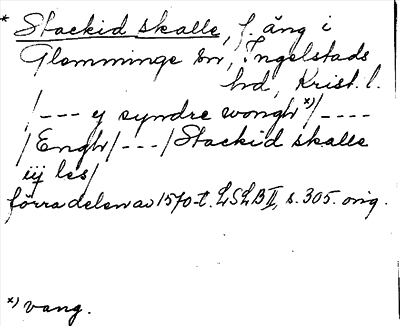 * Stackid skalle, f. äng i
Glemminge sn, Ingelstads
hd, Krist. l.
/--- y syndre wongh *)/----
/Engh/---/Stackid skalle
iij les/
förra delen av 1570-t. LSLB II, s. 305. orig.
*) vang.